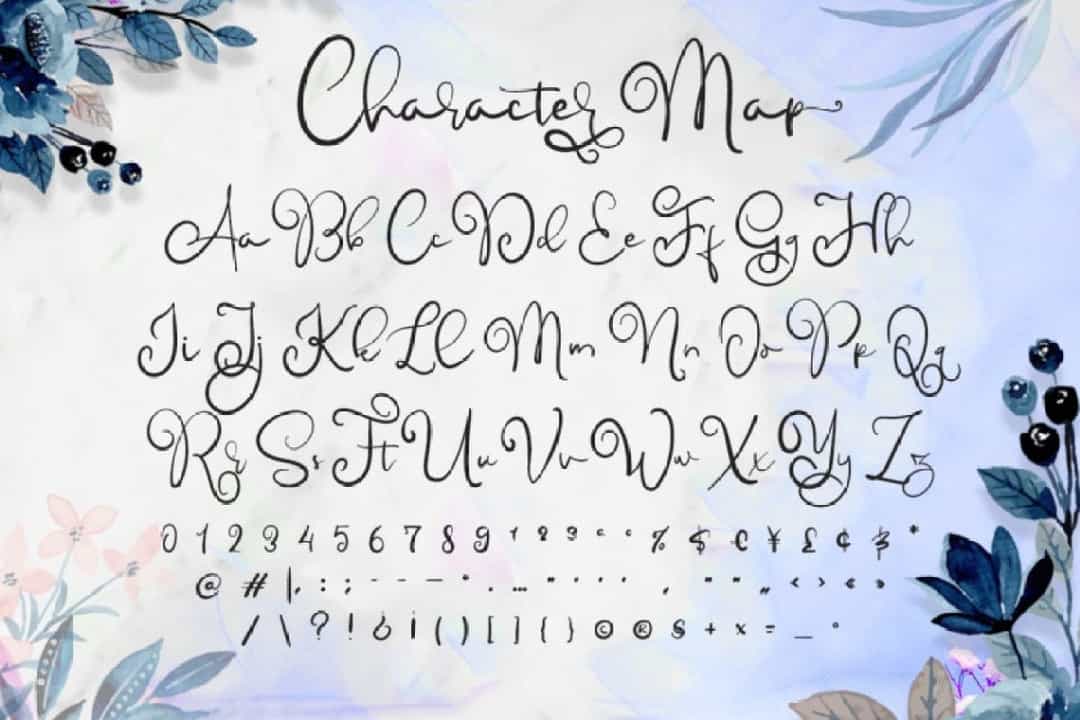 Character Map
Aa Bb Cc Dd Ee Ff Gg Hh
Ii Jj Kk Ll Mm Nn Oo Pp Qq
Rr Ss Tt Uu Vv Ww Xx Yy Zz
0 1 2 3 4 5 6 7 8 9 ¹ ² ³ % $ € ¥ £ ¢ *
@ # | , : ; - – — • . … " ' „ ‹ › « »
/ \ ? ! ¿ ¡ ( ) [ ] { } © ® § + × = _ °